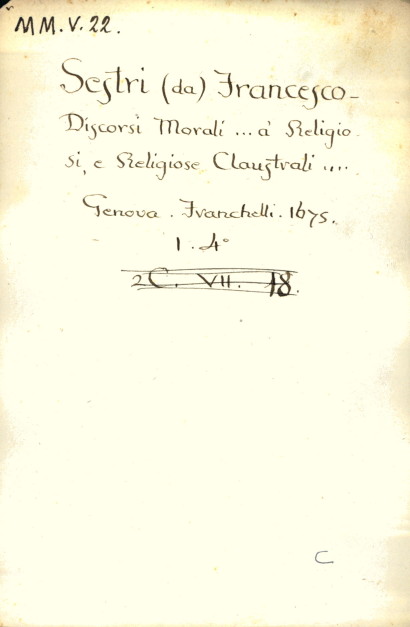 MM.V.22.
Sestri (da) Francesco-
Discorsi Morali ... a' Religio-
si, e Religiose Claustrali ....
Genova. Franchelli. 1675.
1. 4°
2 C. VII. 18.
C